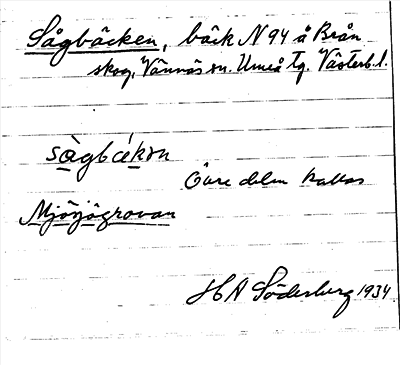 Sågbäcken, bäck N 94 å Brån
skog, Vännäs sn. Umeå tg. Västerb. l.
sàgbǽkɷn
Övre delen kallas
Mjösjögrovan
H A Söderberg 1934